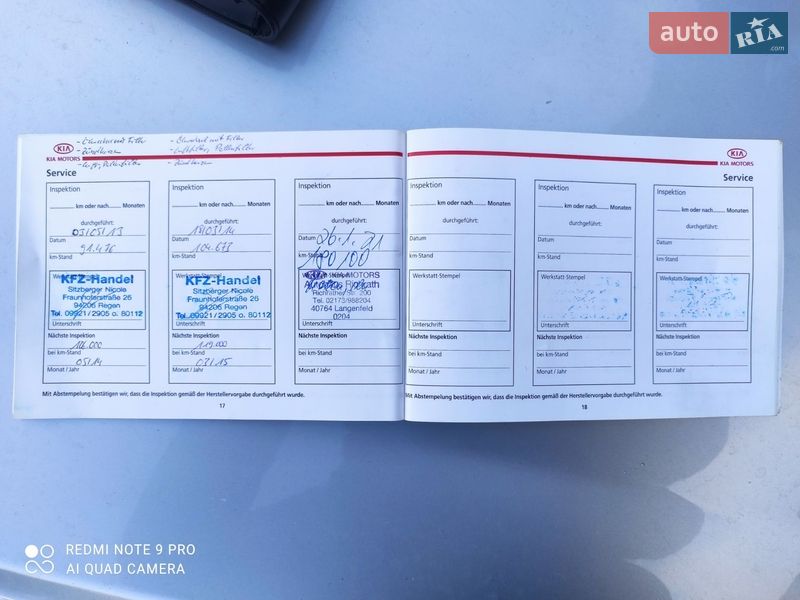 auto
RIA
.com
KIA
KIA MOTORS
Service
Inspektion
km oder nach Monaten
durchgeführt:
03/05/13
Datum
91.476
km-Stand
KFZ-Handel
Sitzberger Nicole
Fraunhoferstraße 26
94209 Regen
Tel. 09921/2905 o. 80112
Unterschrift
Nächste Inspektion
106.000
bei km-Stand
05/14
Monat / Jahr
Inspektion
km oder nach Monaten
durchgeführt:
18/03/14
Datum
104.673
km-Stand
KFZ-Handel
Sitzberger Nicole
Fraunhoferstraße 26
94209 Regen
Tel. 09921/2905 o. 80112
Unterschrift
Nächste Inspektion
119.000
bei km-Stand
03/15
Monat / Jahr
Inspektion
km oder nach Monaten
durchgeführt:
Datum 26.1.21
km-Stand
180100
KIA MOTORS
Richrather Str. 200
Tel. 02173/988204
40764 Langenfeld
0204
Unterschrift
Nächste Inspektion
bei km-Stand
Monat / Jahr
Mit Abstempelung bestätigen wir, dass die Inspektion gemäß der Herstellervorgabe durchgeführt wurde.
17
KIA
KIA MOTORS
Service
Inspektion
km oder nach Monaten
durchgeführt:
Datum
km-Stand
Werkstatt-Stempel
Unterschrift
Nächste Inspektion
bei km-Stand
Monat / Jahr
Inspektion
km oder nach Monaten
durchgeführt:
Datum
km-Stand
Werkstatt-Stempel
Unterschrift
Nächste Inspektion
bei km-Stand
Monat / Jahr
Inspektion
km oder nach Monaten
durchgeführt:
Datum
km-Stand
Werkstatt-Stempel
Unterschrift
Nächste Inspektion
bei km-Stand
Monat / Jahr
Mit Abstempelung bestätigen wir, dass die Inspektion gemäß der Herstellervorgabe durchgeführt wurde.
18
REDMI NOTE 9 PRO
AI QUAD CAMERA